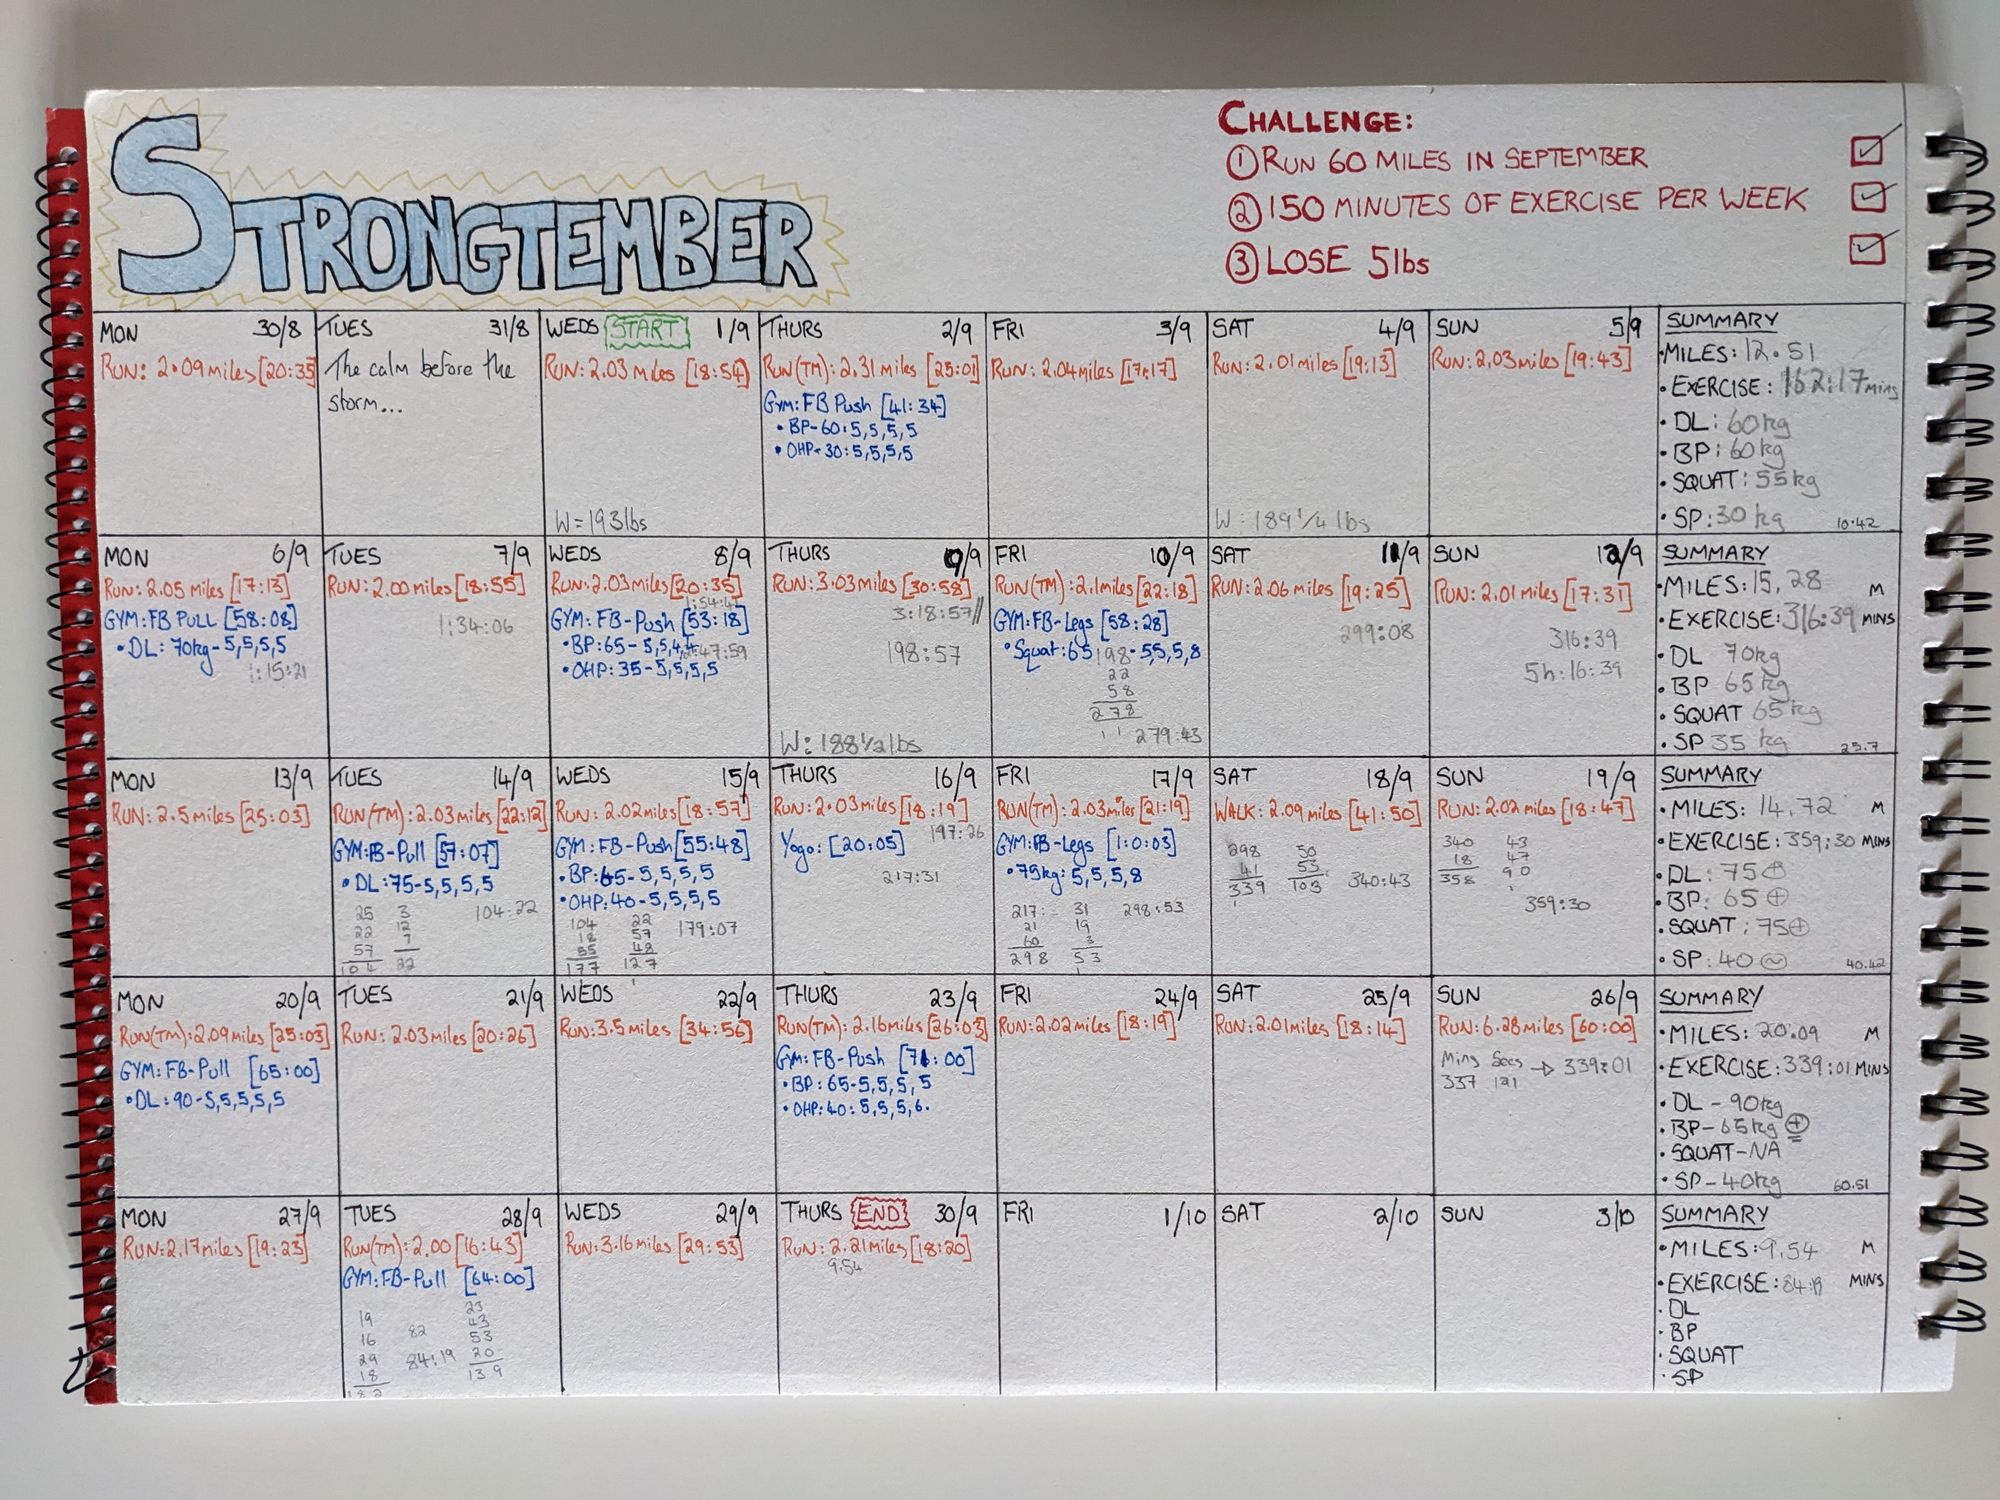 STRONGTEMBER
CHALLENGE:
① RUN 60 MILES IN SEPTEMBER
② 150 MINUTES OF EXERCISE PER WEEK
③ LOSE 5lbs
MON 30/8
RUN: 2.09miles [20:35]
TUES 31/8
The calm before the
storm...
WEDS START 1/9
RUN: 2.03 miles [18:54]
W = 193lbs
THURS 2/9
RUN(TM): 2.31 miles [25:01]
GYM: FB Push [41:34]
• BP-60: 5,5,5,5
• OHP-30: 5,5,5,5
FRI 3/9
RUN: 2.04miles [17:17]
SAT 4/9
RUN: 2.01miles [19:13]
W: 189 1/4 lbs
SUN 5/9
RUN: 2.03miles [19:43]
SUMMARY
• MILES: 12.51
• EXERCISE: 162:17 mins
• DL: 60kg
• BP: 60kg
• SQUAT: 55kg
• SP: 30 kg
10.42
MON 6/9
RUN: 2.05 miles [17:13]
GYM: FB PULL [58:08]
• DL: 70kg-5,5,5,5
1:15:21
TUES 7/9
RUN: 2.00miles [18:55]
1:34:06
WEDS 8/9
RUN: 2.03miles [20:35]
GYM: FB-Push [53:18]
• BP: 65-5,5,4,
• OHP: 35-5,5,5,5
THURS 9/9
RUN: 3.03miles [30:58]
3:18:57
198:57
W: 188 1/2 lbs
FRI 10/9
RUN(TM): 2.1miles [22:18]
GYM: FB-Legs [58:28]
• Squat: 65 198 - 5,5,5,8
22
58
278
1 1 279:43
SAT 11/9
RUN: 2.06 miles [19:25]
299:08
SUN 12/9
RUN: 2.01miles [17:31]
316:39
5h:16:39
SUMMARY
• MILES: 15.28 M
• EXERCISE: 316:39 MINS
• DL 70kg
• BP 65kg
• SQUAT 65kg
• SP 35 kg
25.7
MON 13/9
RUN: 2.5miles [25:03]
TUES 14/9
RUN(TM): 2.03miles [22:12]
GYM: FB-Pull [57:07]
• DL: 75-5,5,5,5
25 3 104:22
22 12
57 7
104 22
WEDS 15/9
RUN: 2.02miles [18:57]
GYM: FB-Push [55:48]
• BP: 65-5,5,5,5
• OHP: 40-5,5,5,5
104 22 179:07
18 57
55 48
177 127
THURS 16/9
RUN: 2.03miles [18:19]
197:26
Yoga: [20:05]
217:31
FRI 17/9
RUN(TM): 2.03miles [21:19]
GYM: FB-Legs [1:0:03]
• 75kg: 5,5,5,8
217: 31 298:53
21 19
60 3
298 53
SAT 18/9
WALK: 2.09miles [41:50]
298 50
41 53 340:43
339 103
SUN 19/9
RUN: 2.02miles [18:47]
340 43
18 47
358 90
359:30
SUMMARY
• MILES: 14.72 M
• EXERCISE: 359:30 MINS
• DL: 75 ⊕
• BP: 65 ⊕
• SQUAT: 75 ⊕
• SP: 40
40.42
MON 20/9
RUN(TM): 2.09miles [25:03]
GYM: FB-Pull [65:00]
• DL: 90-5,5,5,5,5
TUES 21/9
RUN: 2.03miles [20:26]
WEDS 22/9
RUN: 3.5miles [34:56]
THURS 23/9
RUN(TM): 2.16miles [26:03]
GYM: FB-Push [71:00]
• BP: 65-5,5,5,5
• OHP: 40: 5,5,5,6.
FRI 24/9
RUN: 2.02miles [18:19]
SAT 25/9
RUN: 2.01miles [18:14]
SUN 26/9
RUN: 6.28miles [60:00]
Mins Secs → 339:01
337 121
SUMMARY
• MILES: 20.09 M
• EXERCISE: 339:01 MINS
• DL - 90kg
• BP - 65kg ⊕
• SQUAT - NA
• SP - 40kg
60.51
MON 27/9
RUN: 2.17miles [19:23]
TUES 28/9
RUN(TM): 2.00 [16:43]
GYM: FB-Pull [64:00]
19 23
16 82 43
29 84:19 53
18 20
182 139
WEDS 29/9
RUN: 3.16miles [29:53]
THURS END 30/9
RUN: 2.21miles [18:20]
9.54
FRI 1/10
SAT 2/10
SUN 3/10
SUMMARY
• MILES: 9.54 M
• EXERCISE: 84:19 MINS
• DL
• BP
• SQUAT
• SP